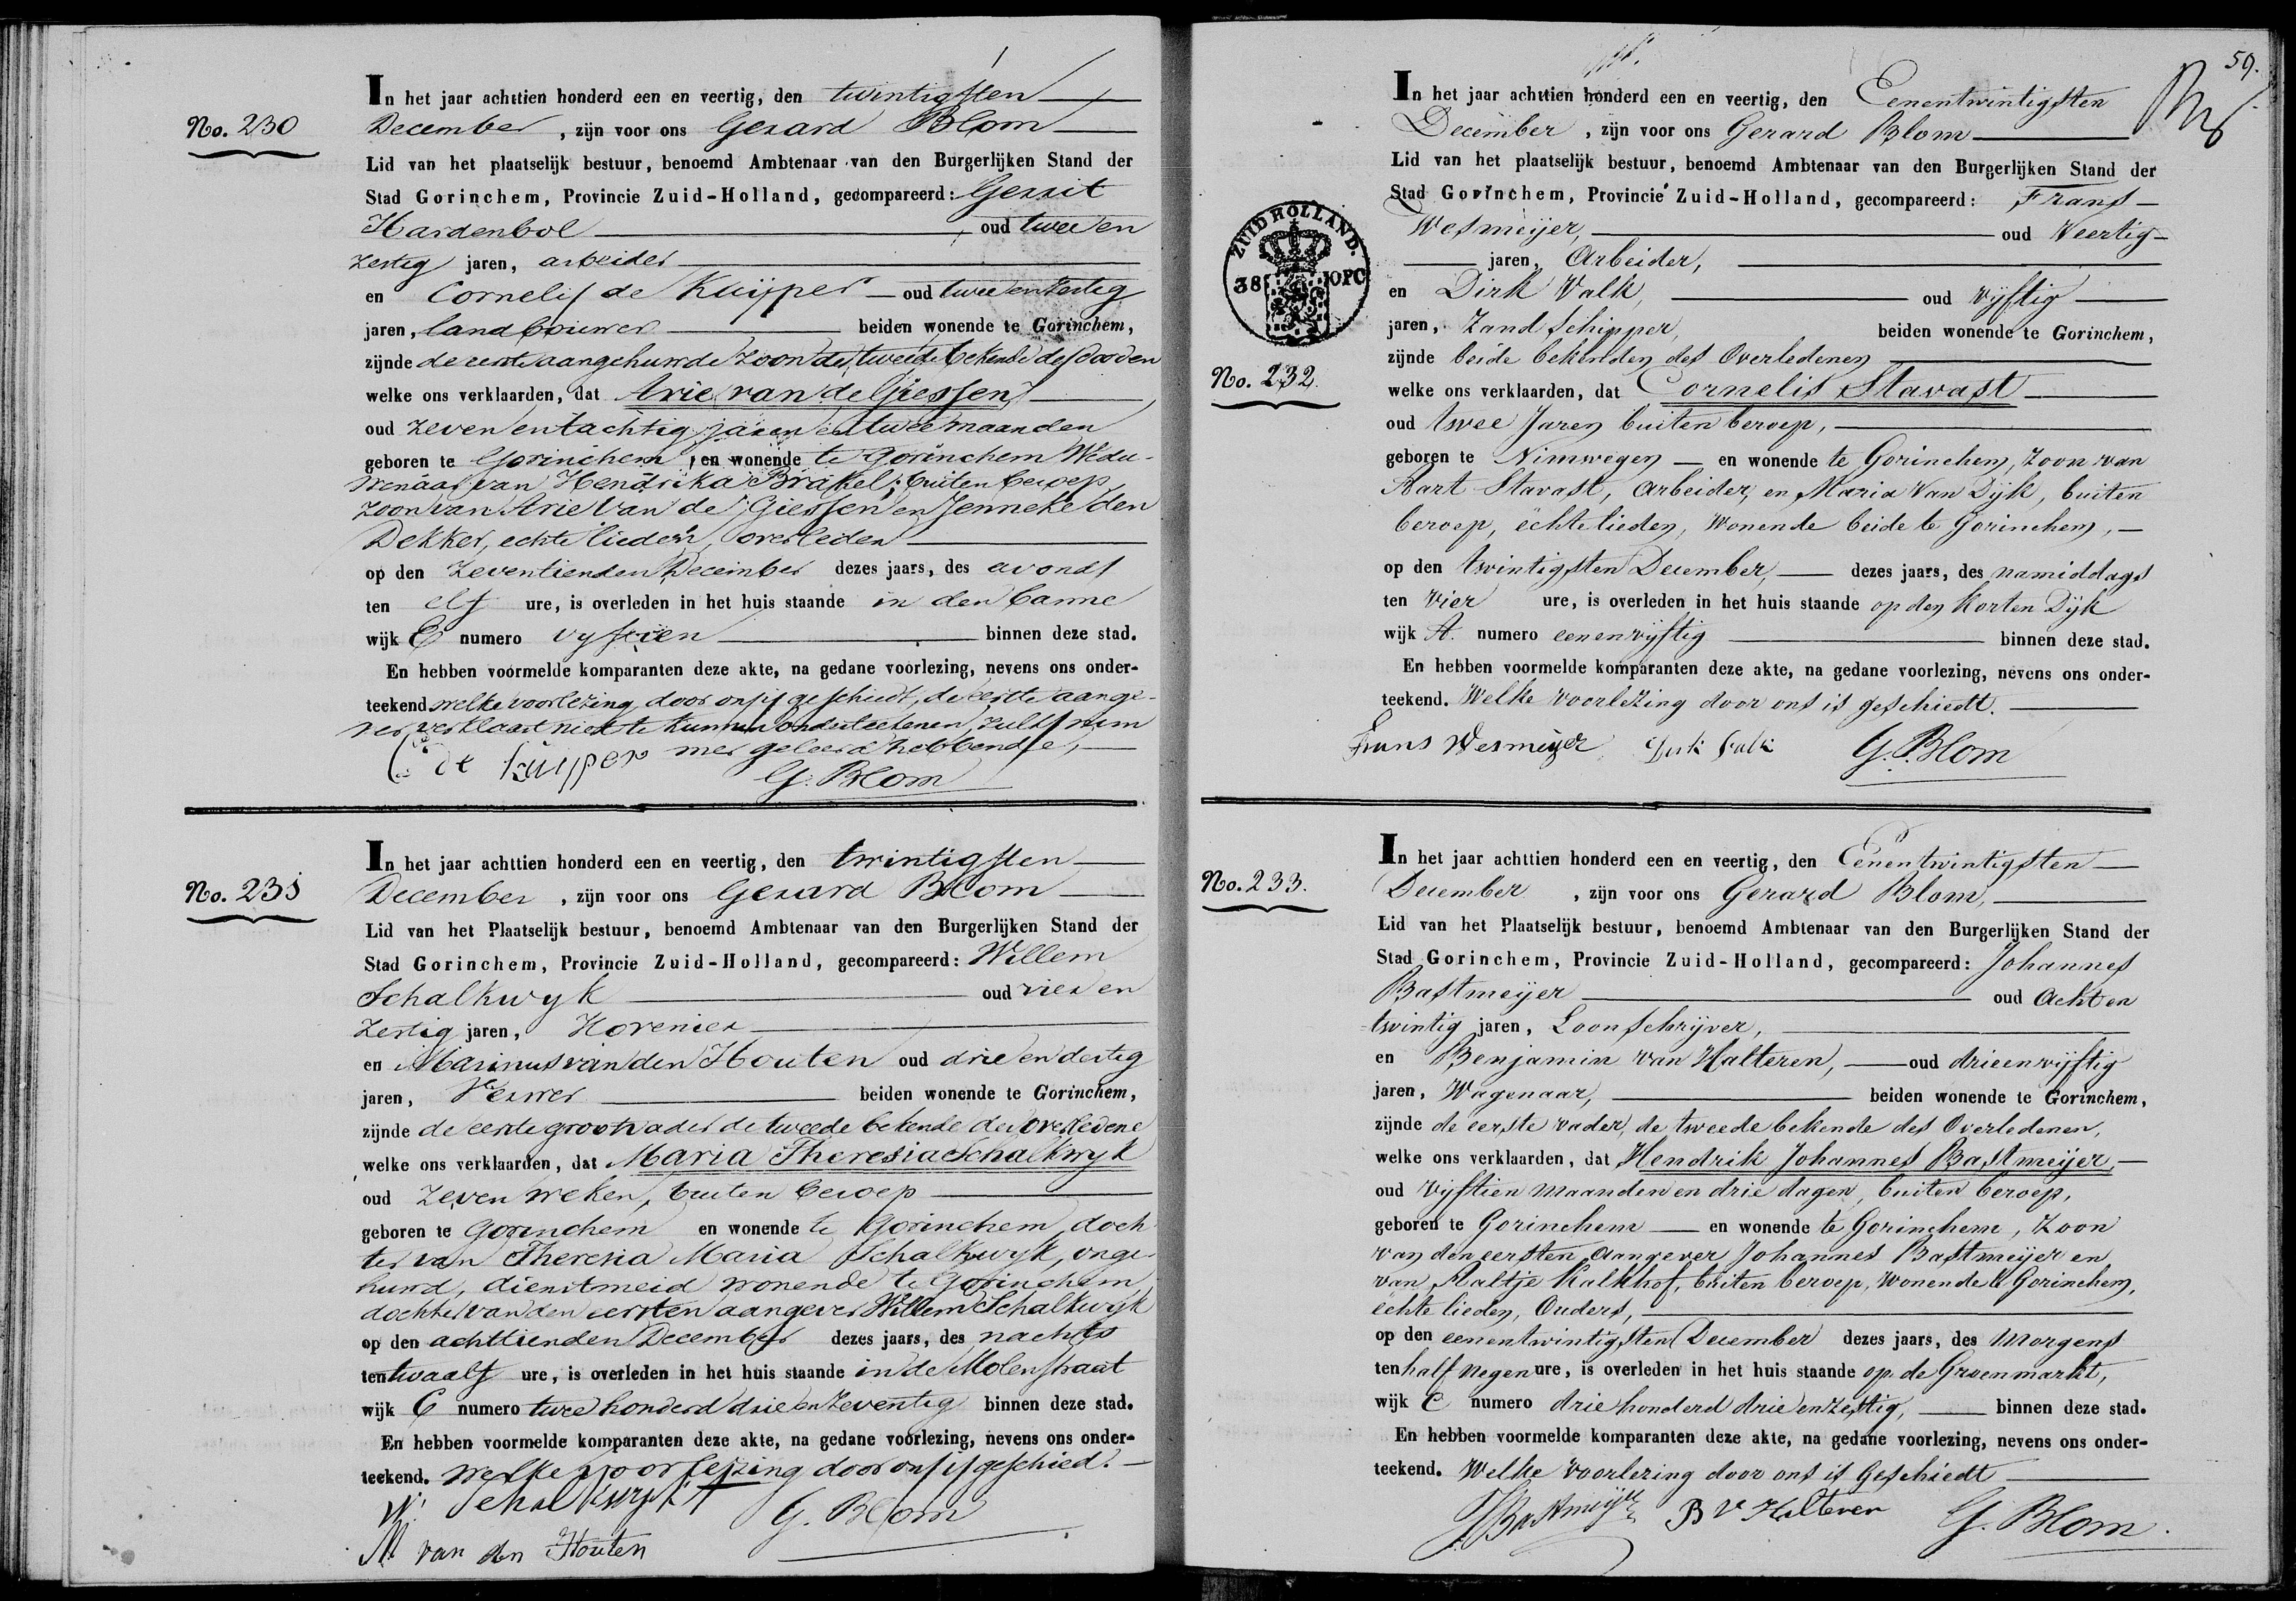 No. 230
In het jaar achttien honderd een en veertig, den twintigsten
December, zijn voor ons Gerard Blom
Lid van het plaatselijk bestuur, benoemd Ambtenaar van den Burgerlijken Stand der
Stad Gorinchem, Provincie Zuid-Holland, gecompareerd: Gerrit
Hardenbol oud twee en
zestig jaren, arbeider
en Cornelis de Kuijper oud twee en zestig
jaren, landbouwer beiden wonende te Gorinchem,
zijnde de eerste aangehuwde zoon de tweede bekende des dooden
welke ons verklaarden, dat Arie van de Giessen
oud zeven en tachtig jaren en twee maanden
geboren te Gorinchem, en wonende te Gorinchem Wedu-
wenaar van Hendrika Brakel, buiten beroep
zoon van Arie van de Giessen en Jenneke den
Dekker, echte lieden, overleden
op den zeventienden December dezes jaars, des avonds
ten elf ure, is overleden in het huis staande in den Canne
wijk C numero vyftien binnen deze stad.
En hebben voormelde komparanten deze akte, na gedane voorlezing, nevens ons onder-
teekend. welke voorlezing door ons is geschiedt, de eerste aange-
ver verklaard niet te kunnen onderteekenen, zulks nim
mer geleerd hebbende,
C de Kuijper
G. Blom
No. 231
In het jaar achttien honderd een en veertig, den twintigsten
December, zijn voor ons Gerard Blom
Lid van het Plaatselijk bestuur, benoemd Ambtenaar van den Burgerlijken Stand der
Stad Gorinchem, Provincie Zuid-Holland, gecompareerd: Willem
Schalkwyk oud vier en
zestig jaren, Hovenier
en Marinus van den Houten oud drie en dertig
jaren, Verwer beiden wonende te Gorinchem,
zijnde de eerste grootvader de tweede bekende der overledene
welke ons verklaarden, dat Maria Theresia Schalkwyk
oud zeven weken, buiten beroep
geboren te Gorinchem en wonende te Gorinchem, doch
ter van Theresia Maria Schalkwyk, onge-
huwd, dienstmeid wonende te Gorinchem,
dochter van den eersten aangever Willem Schalkwyk
op den achttienden December dezes jaars, des nachts
ten twaalf ure, is overleden in het huis staande in de Molenstraat
wijk C numero twee honderd drie en zeventig binnen deze stad.
En hebben voormelde komparanten deze akte, na gedane voorlezing, nevens ons onder-
teekend. welke voorlezing door ons is geschied.
W. Schalkwyk
G. Blom
M van den Houten
59.
In het jaar achttien honderd een en veertig, den Eenentwintigsten
December, zijn voor ons Gerard Blom
Lid van het plaatselijk bestuur, benoemd Ambtenaar van den Burgerlijken Stand der
Stad Gorinchem, Provincie Zuid-Holland, gecompareerd: Frans
Wesmeijer, oud Veertig
jaren, Arbeider,
ZUID HOLLAND.
38 10PC
en Dirk Valk, oud vijftig
jaren, Zandschipper, beiden wonende te Gorinchem,
zijnde beide bekenden des Overledenen
No. 232.
welke ons verklaarden, dat Cornelis Stavast
oud twee Jaren buiten beroep,
geboren te Nimwegen en wonende te Gorinchem, Zoon van
Aart Stavast, Arbeider, en Maria Van Dijk, buiten
beroep, echtelieden, Wonende beide te Gorinchem,
op den twintigsten December, dezes jaars, des namiddags
ten Vier ure, is overleden in het huis staande op den Korten Dijk
wijk A. numero eenenvijftig binnen deze stad.
En hebben voormelde komparanten deze akte, na gedane voorlezing, nevens ons onder-
teekend. Welke Voorlezing door ons is geschiedt.
Frans Wesmeijer Dirk Valk G. Blom
No. 233.
In het jaar achttien honderd een en veertig, den Eenentwintigsten
December, zijn voor ons Gerard Blom,
Lid van het Plaatselijk bestuur, benoemd Ambtenaar van den Burgerlijken Stand der
Stad Gorinchem, Provincie Zuid-Holland, gecompareerd: Johannes
Bastmeijer oud Acht en
twintig jaren, Loonschrijver,
en Benjamin van Halteren, oud drieenvijftig
jaren, Wagenaar, beiden wonende te Gorinchem,
zijnde de eerste vader, de tweede bekende des Overledenen,
welke ons verklaarden, dat Hendrik Johannes Bastmeijer,
oud Vijftien Maanden en drie dagen, buiten beroep,
geboren te Gorinchem en wonende te Gorinchem, Zoon
van den eersten aangever Johannes Bastmeijer en
van Aaltje Kalkhof, buiten beroep, Wonende te Gorinchem,
echte lieden, Ouders,
op den eenentwintigsten December dezes jaars, des Morgens
ten half Negen ure, is overleden in het huis staande op de Groenmarkt,
wijk C numero drie honderd drie en zestig, binnen deze stad.
En hebben voormelde komparanten deze akte, na gedane voorlezing, nevens ons onder-
teekend. Welke Voorlezing door ons is Geschiedt
J Bastmeijer B V Halteren G. Blom.